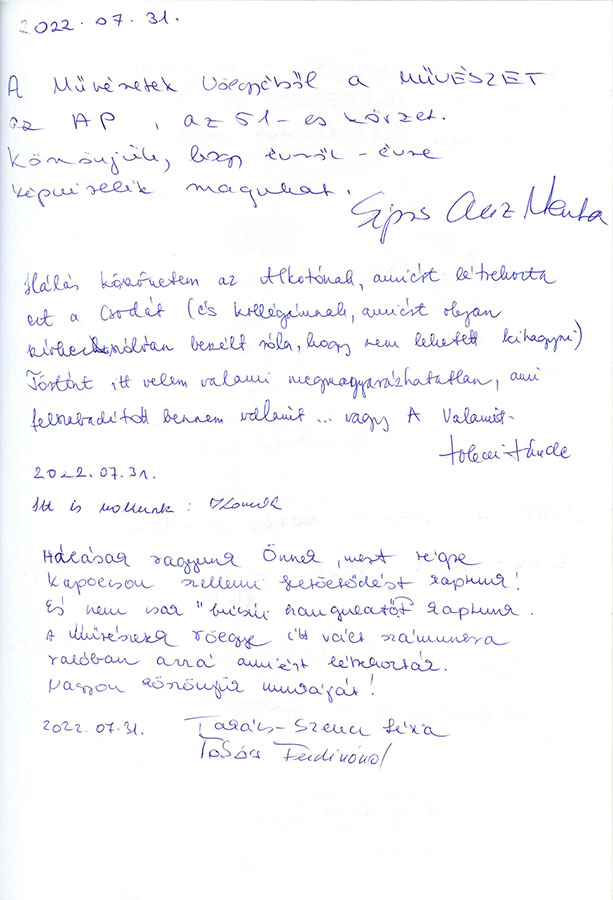 2022.07.31.
A Művészetek Völgyéből a MŰVÉSZET
az AP, az 51-es körzet.
Köszönjük, hogy évről-évre
képviselik magukat.
Hálás köszönetem az Alkotónak, amiért létrehozta
ezt a Csodát (és kollégámnak, amiért olyan
beszélt róla, hogy nem lehetett kihagyni)
Történt itt velem valami megmagyarázhatatlan, ami
felszabadított bennem valamit... vagy A Valamit.
2022.07.31.
Itt is voltunk:
Hálásak vagyunk Önnek, mert végre
Kapolcson szellemi feltöltődést kaptunk!
És nem csak "búcsúi hangulatot" kaptunk.
A Művészetek völgye itt vált számunkra
valóban azzá amiért létrehozták.
Nagyon köszönjük munkáját!
2022.07.31. Takács-Szencz
Ferdinánd